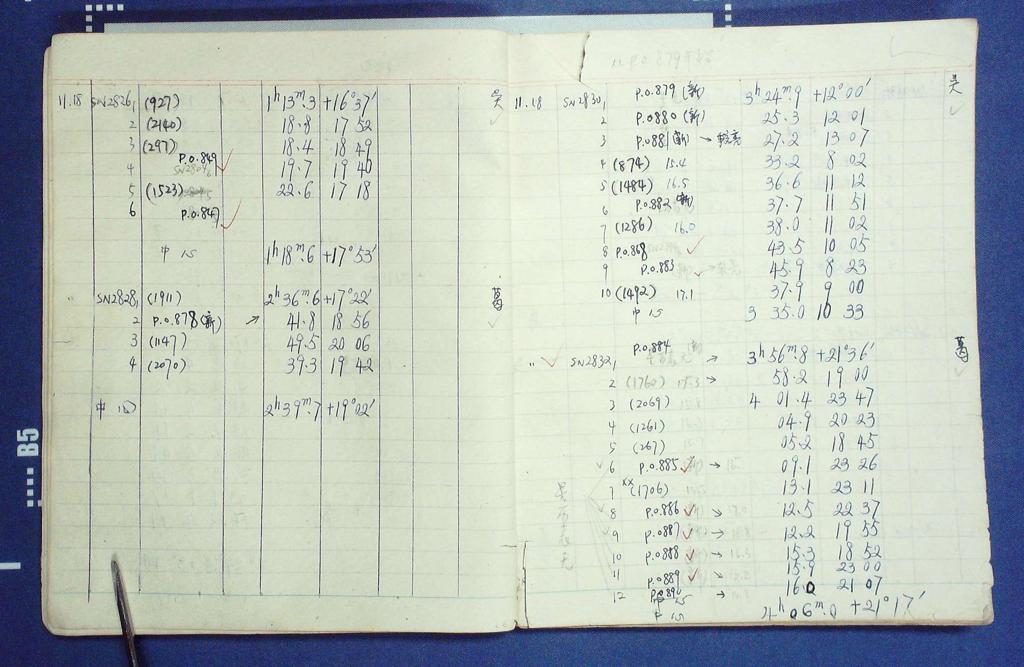 11.18 SN2826, 1 (927) 1h 13m.3 +16°37′ 吴
2 (2140) 18.8 17 52
3 (297) 18.4 18 49
4 P.O.849 19.7 19 40
5 (1523) 22.6 17 18
6 P.O.847
中 15 1h 18m.6 +17°53′
" SN2828, 1 (1911) 2h 36m.6 +17°22′ 葛
2 P.O.878 (新) → 41.8 18 56
3 (1147) 49.5 20 06
4 (2070) 39.3 19 42
中 15 2h 39m.7 +19°02′
11.18 SN2830, 1 P.O.879 (新) 3h 24m.9 +12°00′ 吴
2 P.O.880 (新) 25.3 12 01
3 P.O.881 (新) → 27.2 13 07
4 (874) 15.4 33.2 8 02
5 (1484) 16.5 36.6 11 12
6 P.O.882 (新) 37.7 11 51
7 (1286) 16.0 38.0 11 02
8 P.O.868 43.5 10 05
9 P.O.883 45.9 8 23
10 (1492) 17.1 37.9 9 00
中 15 3 35.0 10 33
" SN2832, 1 P.O.884 → 3h 56m.8 +21°36′ 葛
2 (1760) 15.3 → 58.2 19 00
3 (2069) 4 01.4 23 47
4 (1261) 04.9 20 23
5 (267) 05.2 18 45
6 P.O.885 → 09.1 23 26
7 xx (1706) 13.1 23 11
8 P.O.886 → 12.5 22 37
9 P.O.887 → 12.2 19 55
10 P.O.888 → 15.3 18 52
11 P.O.889 → 15.9 23 00
12 → 16.0 21 07
中 15 4h 06m.0 +21°17′
B5